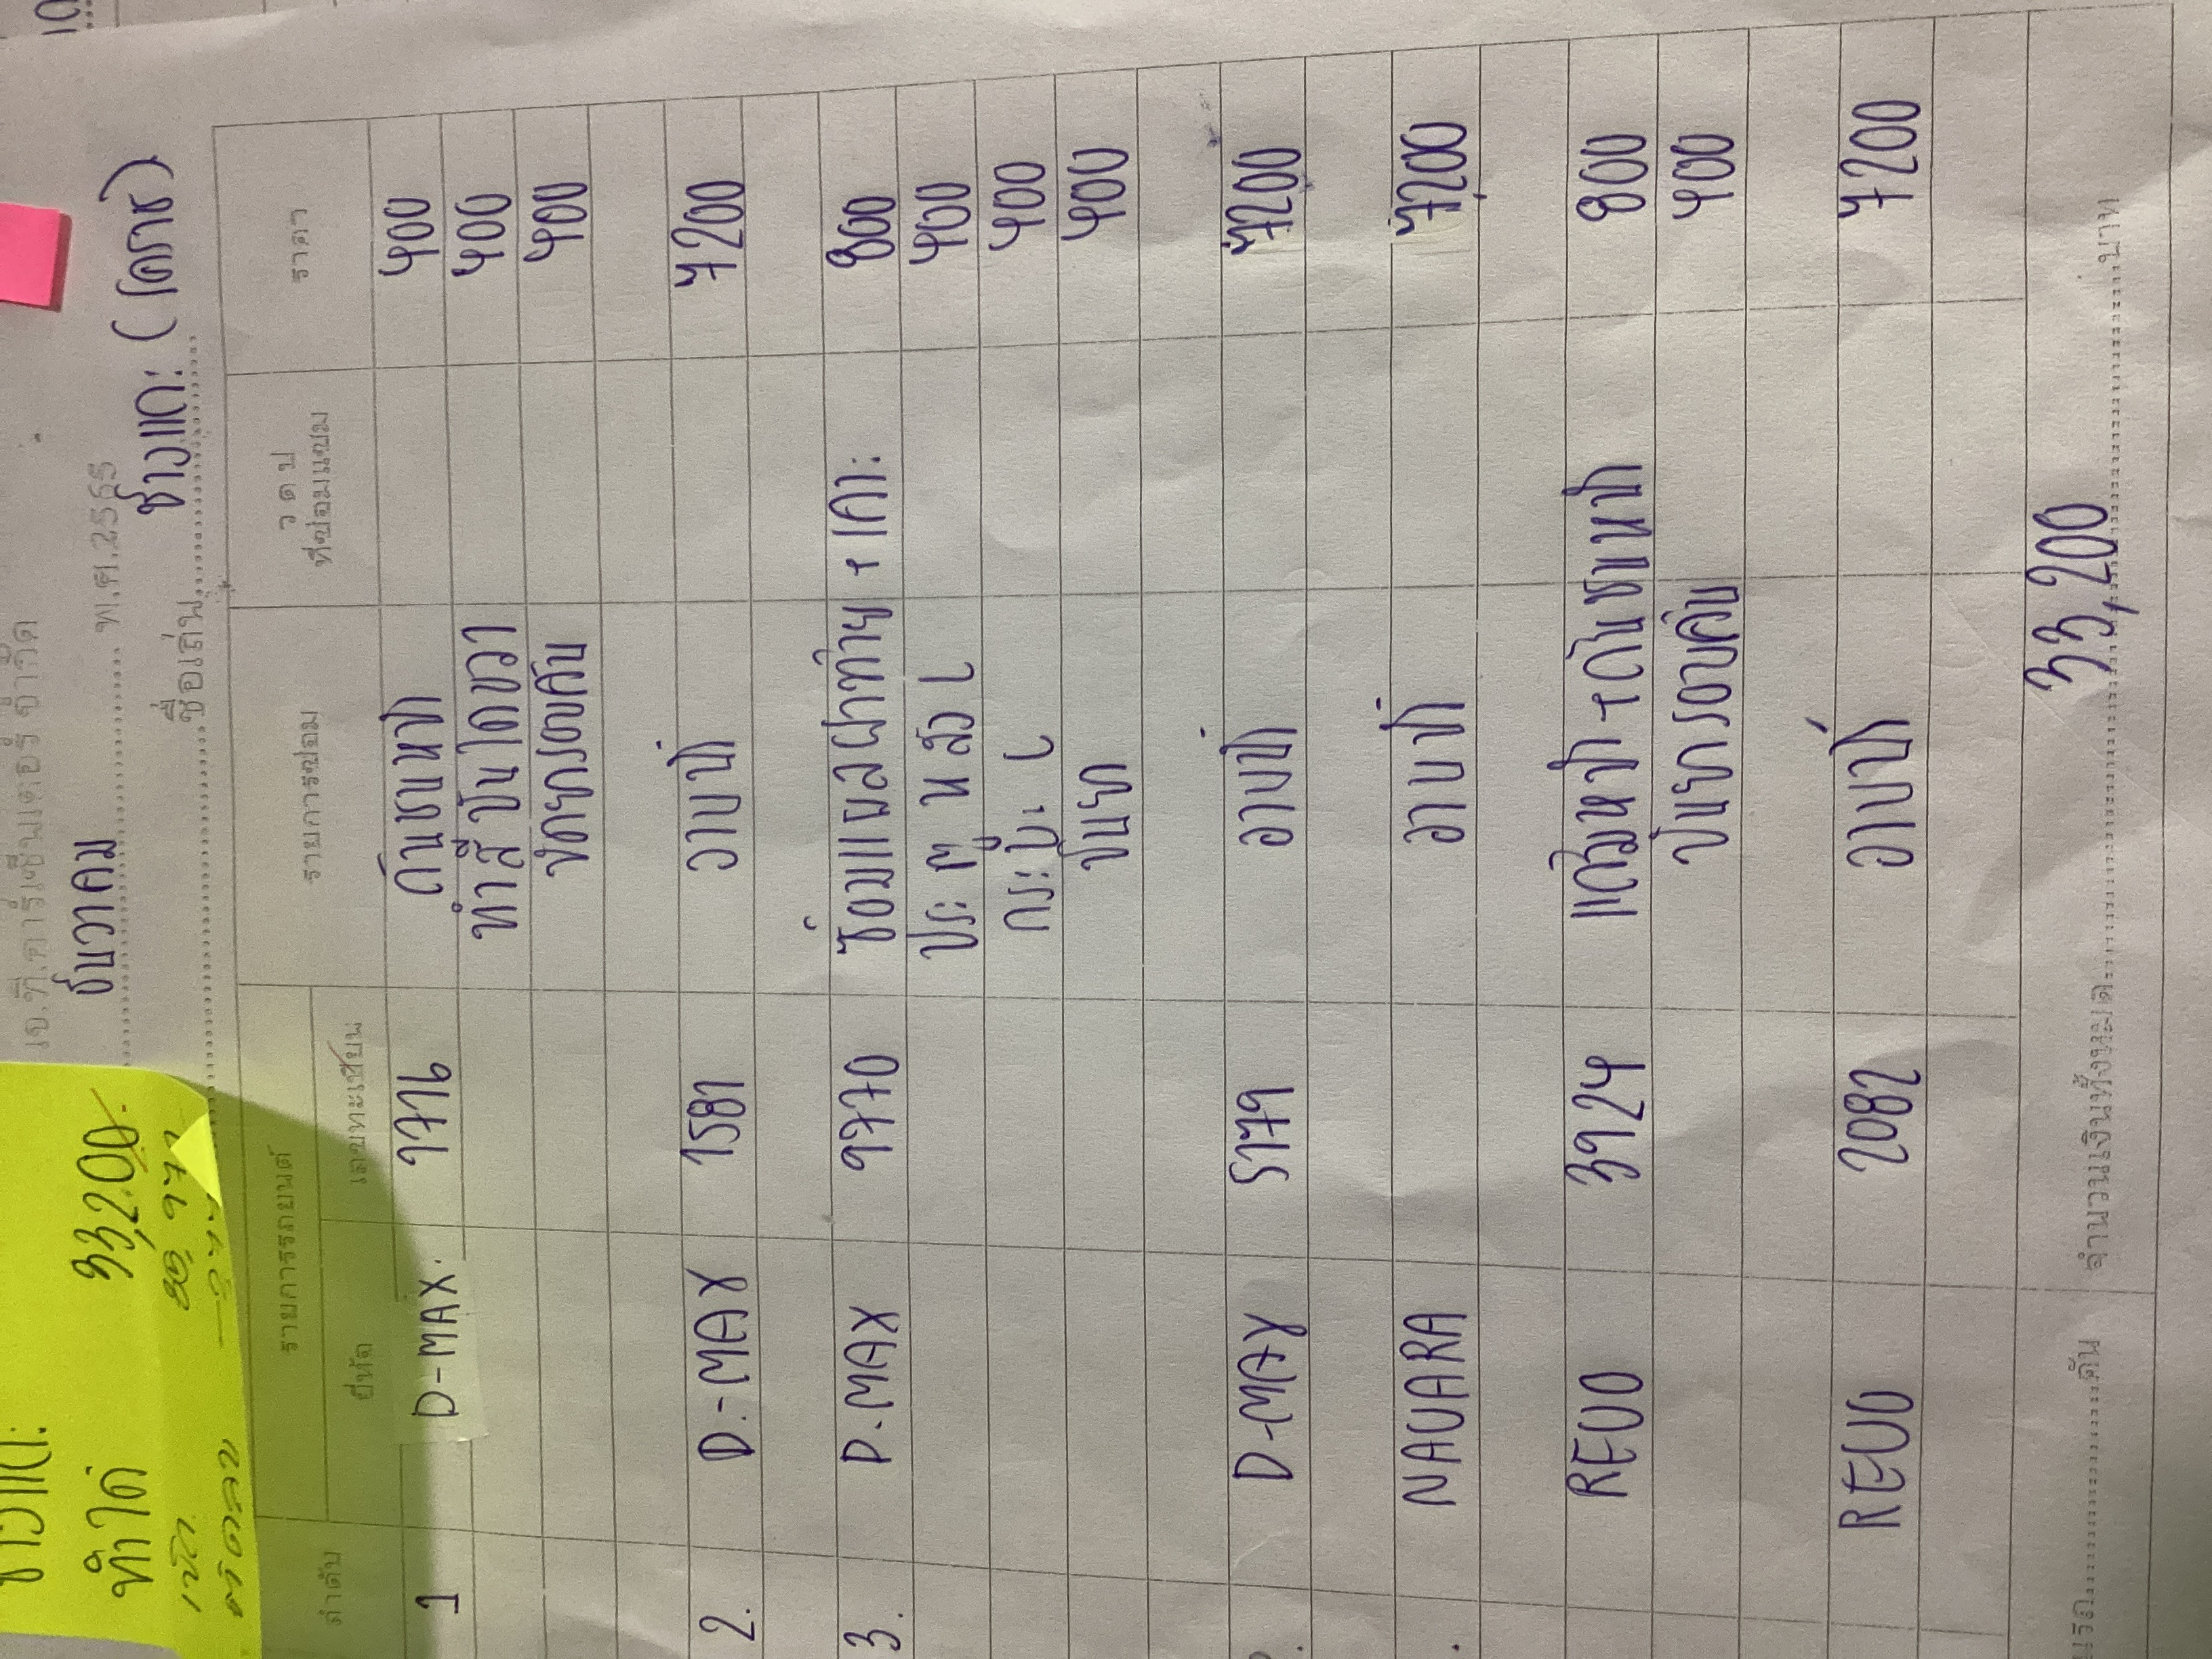 ธันวาคม พ.ศ.2565
ชื่อเล่น ช่างแกะ (โคราช)
ลำดับ รายการรถยนต์ รายการซ่อม ว ด ป ที่ซ่อมแซม ราคา
ยี่ห้อ เลขทะเบียน
1 D-MAX 7716 กันชนหน้า 400
ทำสี บันได ขวา 400
ขัดยารอบคัน 400
2. D-MAX 1581 วาบปา 7200
3. D-MAX 9770 ซ่อมแผลฝาท้าย + เคาะ 800
ประตู หลัง L 400
กระบะ L 400
ปั่นยา 400
D-MAX 5779 อาบป่า 7200
NAVARA อาบป่า 7200
REVO 3924 แก้มหน้า + กันชนหน้า 800
ปั่นยารอบคัน 400
REVO 2082 อาบป่า 7200
คัน จำนวนเงินทั้งหมด 33,200 บาท
ช่างแกะ
ทำได้ 33,200.-